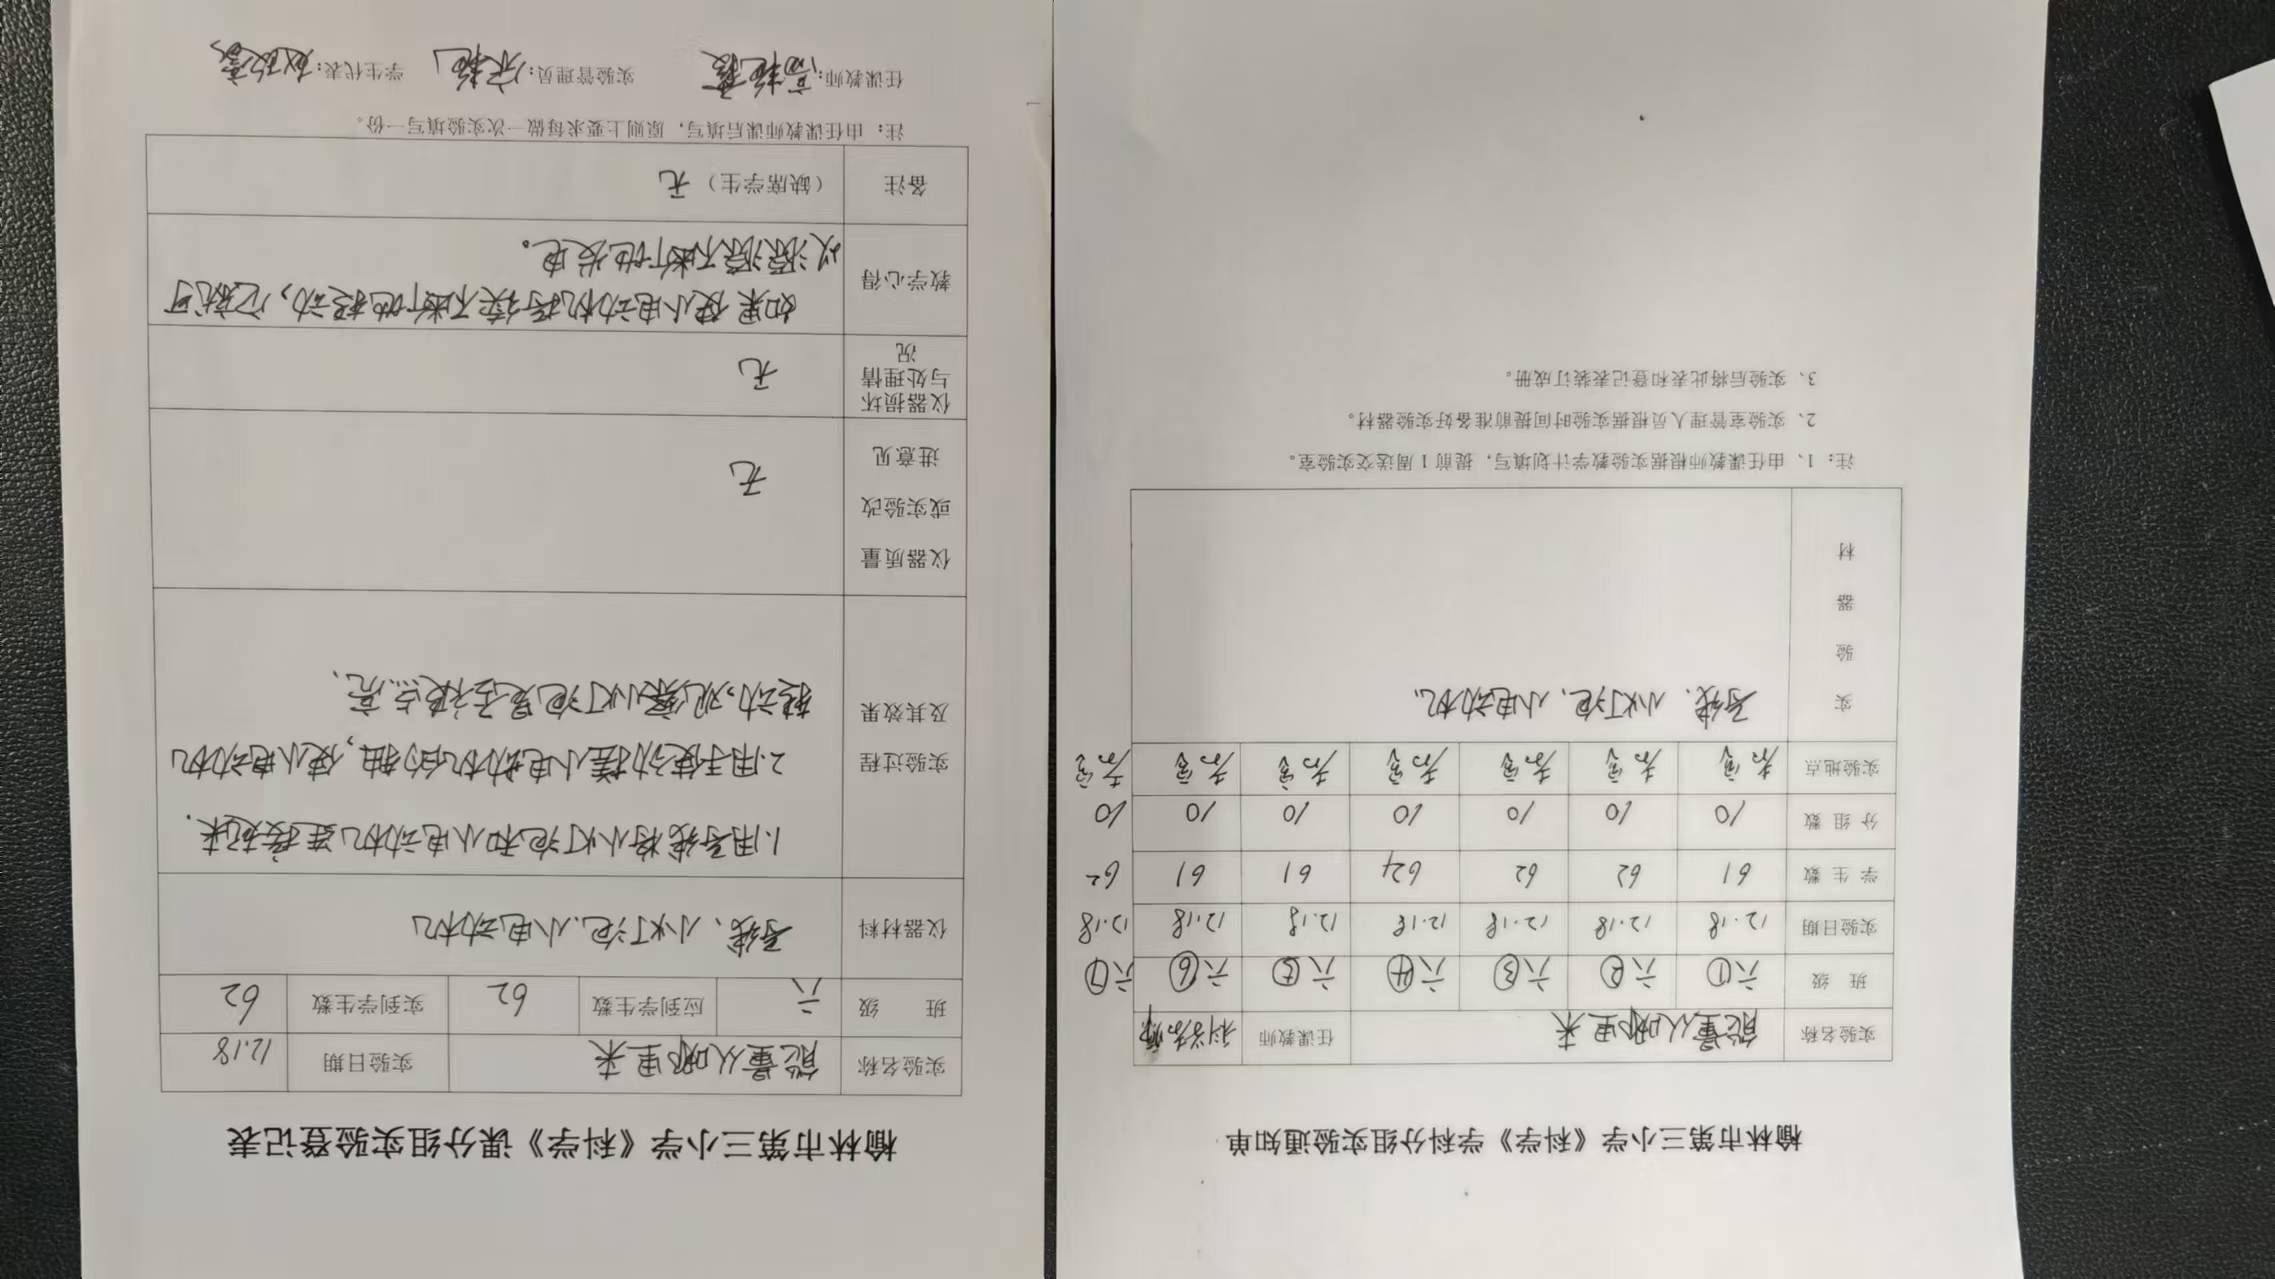 榆林市第三小学《科学》学科分组实验通知单
实验名称 能量从哪里来 任课教师
班 级 六① 六② 六③ 六④ 六⑤ 六⑥ 六⑦
实验日期 12.18 12.18 12.18 12.18 12.18 12.18 12.18
学 生 数 61 62 62 61 61 62
分 组 数 10 10 10 10 10 10 10
实验地点 教室 教室 教室 教室 教室 教室 教室
实验器材 导线、小灯泡、小电动机。
注:1、由任课教师根据实验教学计划填写,提前1周送交实验室。
2、实验室管理人员根据实验时间提前准备好实验器材。
3、实验后将此表和登记表装订成册。
榆林市第三小学《科学》课分组实验登记表
实验名称 能量从哪里来 实验日期 12.18
班 级 六 应到学生数 62 实到学生数 62
仪器材料 导线、小灯泡、小电动机
实验过程及其效果
1.用导线将小灯泡和小电动机连接起来.
2.用手使劲搓小电动机的轴,使小电动机
转动,观察小灯泡是否被点亮.
仪器质量或实验改进意见 无
仪器损坏与处理情况 无
教学心得
如果使小电动机持续不断地转动,它就可
以源源不断地发电。
备注 (缺席学生) 无
注:由任课教师课后填写,原则上要求每做一次实验填写一份。
任课教师: 实验管理员: 学生代表: